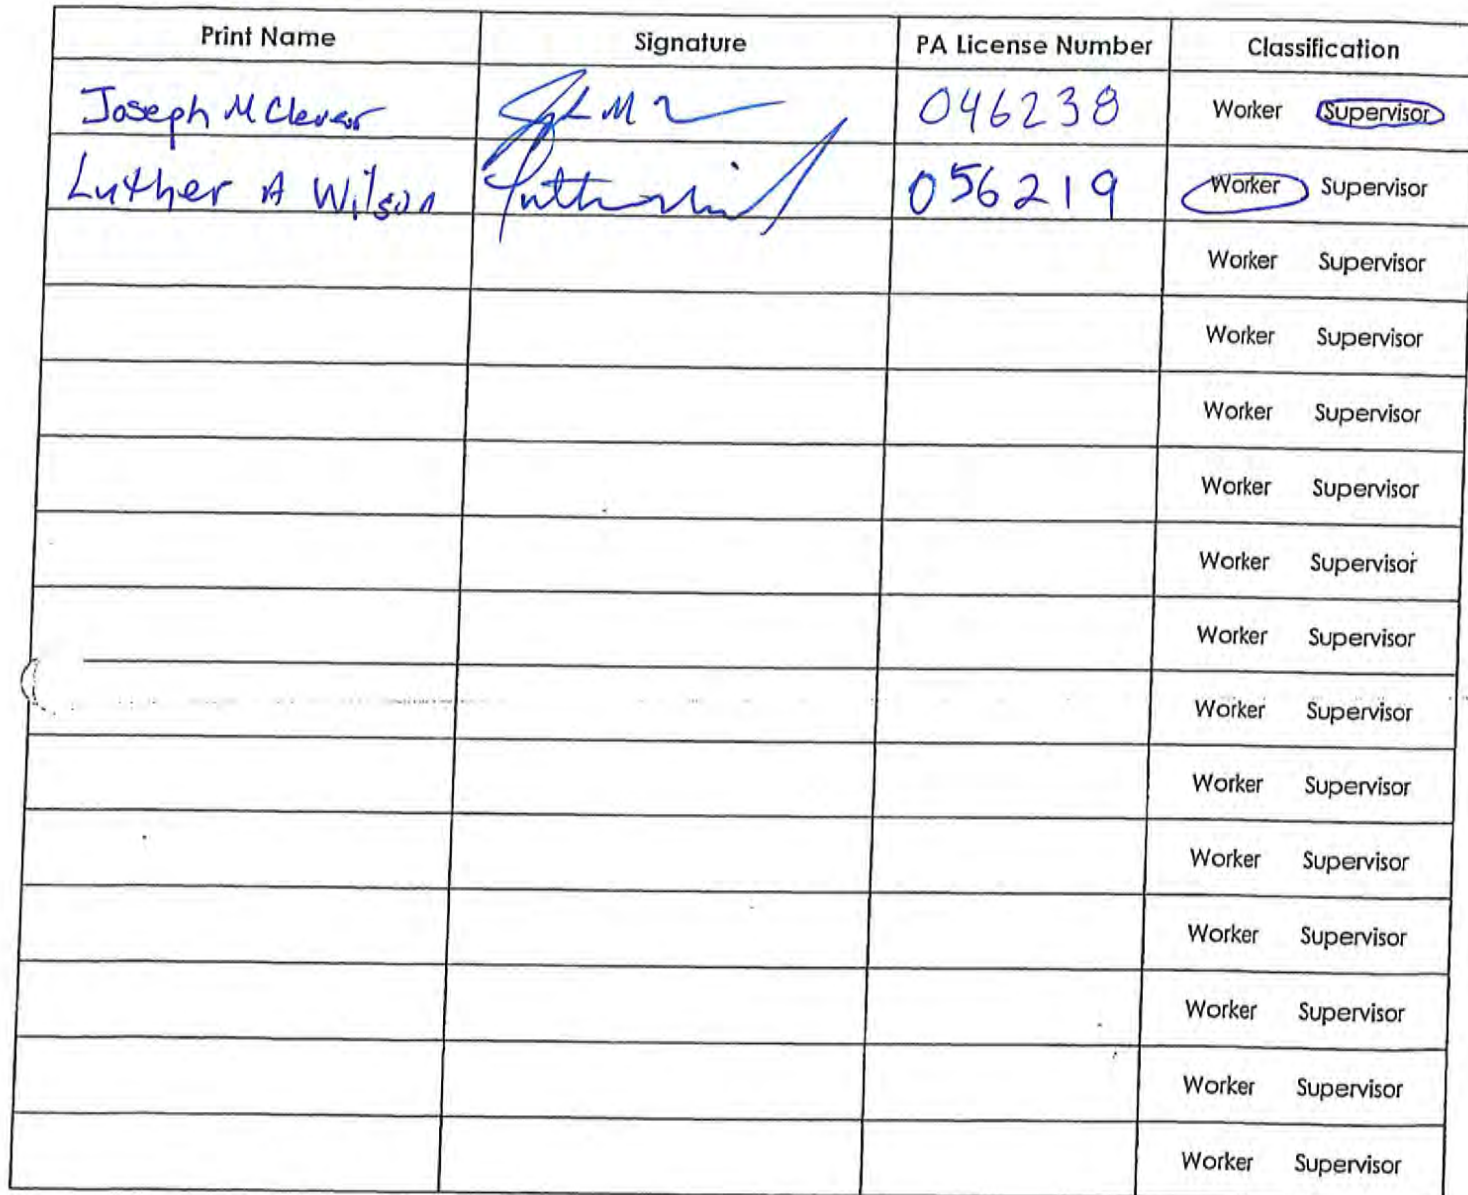 Print Name Signature PA License Number Classification
Joseph M Clevar 046238 Worker Supervisor
Luther A Wilson 056219 Worker Supervisor
Worker Supervisor
Worker Supervisor
Worker Supervisor
Worker Supervisor
Worker Supervisor
Worker Supervisor
Worker Supervisor
Worker Supervisor
Worker Supervisor
Worker Supervisor
Worker Supervisor
Worker Supervisor
Worker Supervisor